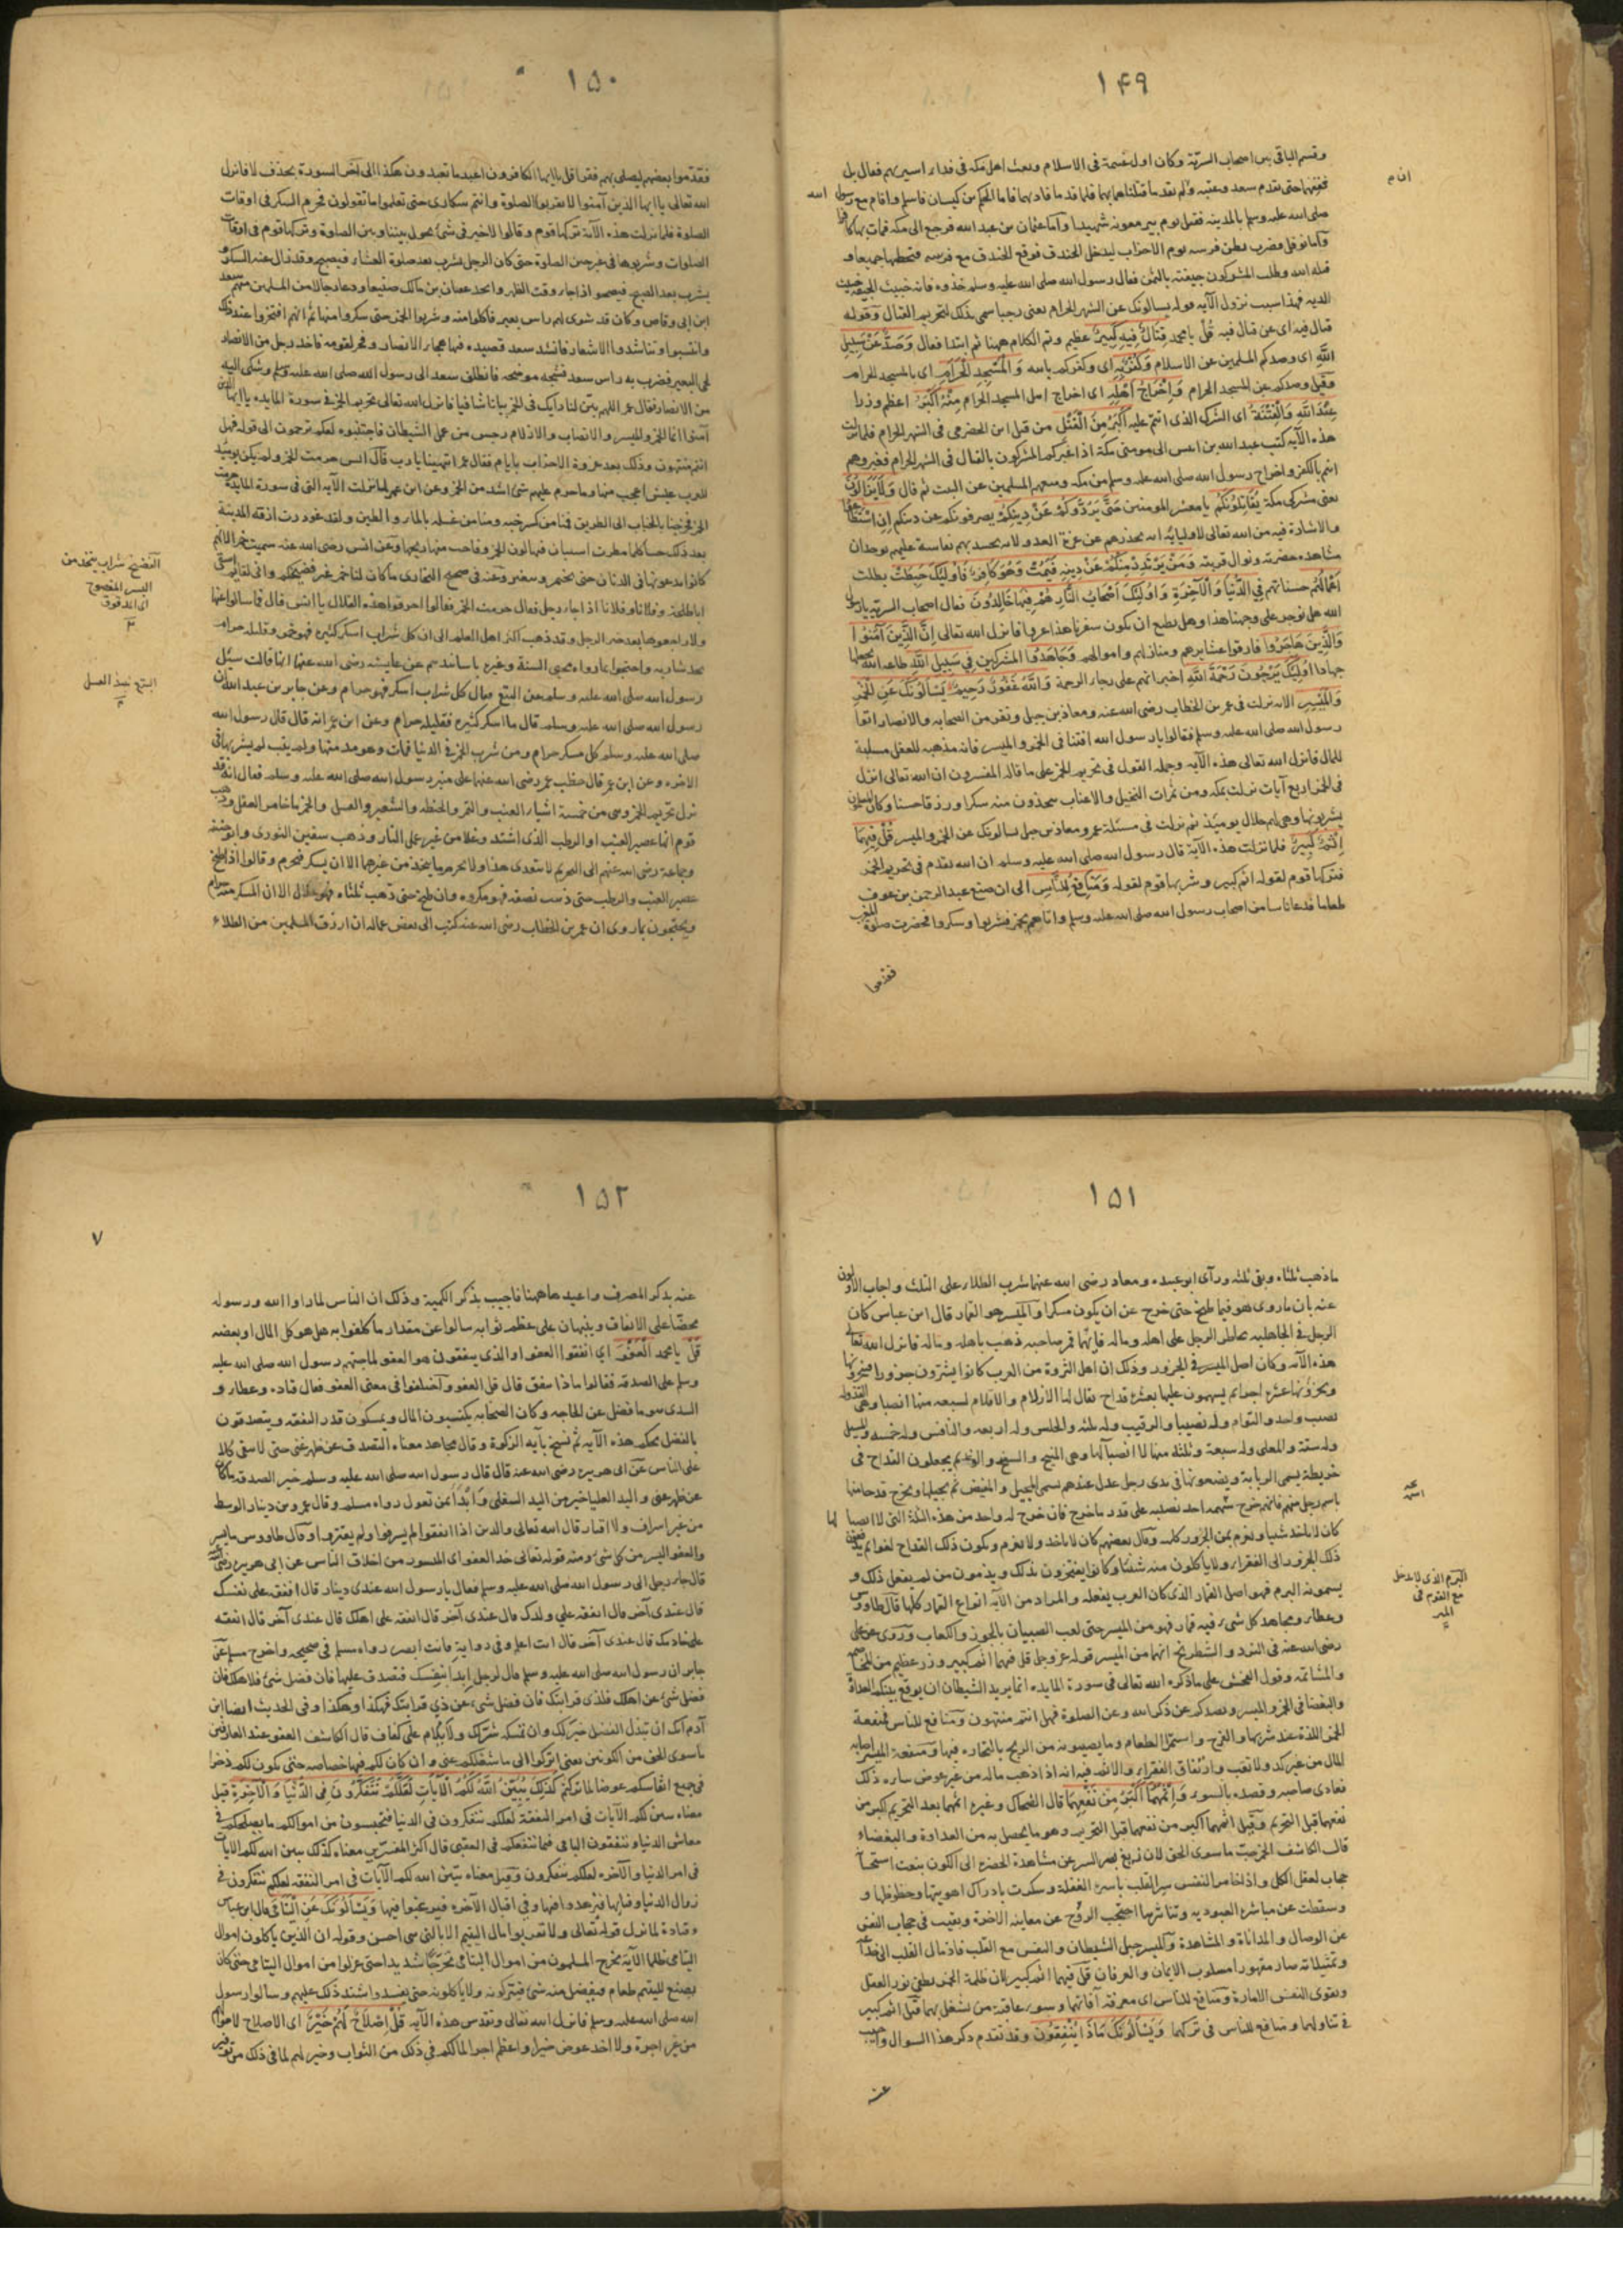 ١٤٩
وقسم الباقى بين اصحاب السرية وكان اول غنيمة فى الاسلام وبعث اهل مكة فى فداء اسيريهم فقال بل
نقفهما حتى يقدم سعد وعتبة وان لم يقدما قتلناهما بهما فلما قدما فاداهما فاما الحكم بن كيسان فاسلم واقام مع رسول الله
صلى الله عليه وسلم بالمدينة فقتل يوم بير معونة شهيدا واما عثمان بن عبد الله فرجع الى مكة فمات بها كافرا
واما نوفل فضرب بطن فرسه يوم الاحزاب ليدخل الخندق فوقع فى الخندق مع فرسه فتحطما جميعا و
قتله الله وطلب المشركون جيفته بالثمن فقال رسول الله صلى الله عليه وسلم خذوه فانه خبيث الجيفة خبيث
الدية فهذا سبب نزول الآية قوله يسألونك عن الشهر الحرام يعنى رجبا سمى بذلك لتحريم القتال وقوله
قتال فيه اى عن قتال فيه قُلْ يا محمد قِتَالٌ فِيهِ كَبِيرٌ عظيم وتم الكلام ههنا ثم ابتدا فقال وَصَدٌّ عَنْ سَبِيلِ
اللَّهِ اى وصدكم المسلمين عن الاسلام وَكُفْرٌ بِهِ اى وكفركم بالله وَالْمَسْجِدِ الْحَرَامِ اى بالمسجد الحرام
وقيل وصدكم عن المسجد الحرام وَإِخْرَاجُ أَهْلِهِ اى اخراج اهل المسجد الحرام مِنْهُ أَكْبَرُ اعظم وزرا
عِنْدَ اللَّهِ وَالْفِتْنَةُ اى الشرك الذى انتم عليه أَكْبَرُ مِنَ الْقَتْلِ من قتل ابن الحضرمى فى الشهر الحرام فلما نزلت
هذه الآية كتب عبد الله بن الى مومنى مكة اذا عيركم المشركون بالقتال فى الشهر الحرام فعيروهم
انتم بالكفر واخراج رسول الله صلى الله عليه وسلم من مكة ومنعهم المسلمين عن البيت ثم قال وَلَا يَزَالُونَ
يعنى مشركى مكة يُقَاتِلُونَكُمْ يا معشر المومنين حَتَّى يَرُدُّوكُمْ عَنْ دِينِكُمْ يصرفونكم عن دينكم إِنِ اسْتَطَاعُوا
والاشارة فيه من الله تعالى لاوليائه انه يحذرهم عن غرة العدو لانه يحسد بهم نعاسة عليهم بوجدان
مشاهدة حضرته ونوال قربته وَمَنْ يَرْتَدِدْ مِنْكُمْ عَنْ دِينِهِ فَيَمُتْ وَهُوَ كَافِرٌ فَأُولَئِكَ حَبِطَتْ بطلت
أَعْمَالُهُمْ حسناتهم فِي الدُّنْيَا وَالْآخِرَةِ وَأُولَئِكَ أَصْحَابُ النَّارِ هُمْ فِيهَا خَالِدُونَ فقال اصحاب السرية يا رسول
الله هل نوجر على وجهنا هذا وهل نطمع ان يكون سفرنا هذا غزوا فانزل الله تعالى إِنَّ الَّذِينَ آمَنُوا
وَالَّذِينَ هَاجَرُوا فارقوا عشايرهم ومنازلهم واموالهم وَجَاهَدُوا المشركين فِي سَبِيلِ اللَّهِ طاعة الله
جهادا أُولَئِكَ يَرْجُونَ رَحْمَةَ اللَّهِ اخبر انهم على رجاء الرحمة وَاللَّهُ غَفُورٌ رَحِيمٌ يَسْأَلُونَكَ عَنِ الْخَمْرِ
وَالْمَيْسِرِ الآية نزلت فى عمر بن الخطاب رضى الله عنه ومعاذ بن جبل ونفر من الصحابة والانصار اتوا
رسول الله صلى الله عليه وسلم فقالوا يا رسول الله افتنا فى الخمر والميسر فانه مذهبة للعقل مسلبة
للمال فانزل الله تعالى هذه الآية وجملة القول فى تحريم الخمر على ما قاله المفسرون ان الله تعالى انزل
فى الخمر اربع آيات نزلت بمكة ومن ثمرات النخيل والاعناب تتخذون منه سكرا ورزقا حسنا وكان المسلمون
يشربونها وهى لهم حلال يومئذ ثم نزلت فى مسئلة عمر ومعاذ بن جبل يسالونك عن الخمر والميسر قُلْ فِيهِمَا
إِثْمٌ كَبِيرٌ فلما نزلت هذه الآية قال رسول الله صلى الله عليه وسلم ان الله تقدم فى تحريم الخمر
فتركها قوم لقوله اثم كبير وشربها قوم لقوله وَمَنَافِعُ لِلنَّاسِ الى ان صنع عبد الرحمن بن عوف
طعاما فدعا ناسا من اصحاب رسول الله صلى الله عليه وسلم واتاهم بخمر فشربوا وسكروا فحضرت صلوة المغرب
فقدموا
١٥٠
فقدموا بعضهم ليصلى بهم فقرا قل يا ايها الكافرون اعبد ما تعبدون هكذا الى آخر السورة بحذف لا فانزل
الله تعالى يا ايها الذين آمنوا لا تقربوا الصلوة وانتم سكارى حتى تعلموا ما تقولون فحرم السكر فى اوقات
الصلوة فلما نزلت هذه الآية تركها قوم وقالوا لا خير فى شئ يحول بيننا وبين الصلوة وتركها قوم فى اوقات
الصلوات وشربوها فى غير حين الصلوة حتى كان الرجل يشرب بعد صلوة العشاء فيصبح وقد زال عنه السكر و
يشرب بعد الصبح فيصحو اذا جاء وقت الظهر واتخذ عتبان بن مالك صنيعا ودعا رجالا من المسلمين منهم سعد
ابن ابى وقاص وكان قد شوى لهم راس بعير فاكلوا منه وشربوا الخمر حتى سكروا منها ثم انهم افتخروا عند ذلك
وانتسبوا وتناشدوا الاشعار فانشد سعد قصيدة فيها هجاء الانصار وفخر لقومه فاخذ رجل من الانصار
لحى البعير فضرب به راس سعد فشجه موضحة فانطلق سعد الى رسول الله صلى الله عليه وسلم وشكى اليه
من الانصار فقال عمر اللهم بين لنا رأيك فى الخمر بيانا شافيا فانزل الله تعالى تحريم الخمر فى سورة المايدة يا ايها الذين
آمنوا انما الخمر والميسر والانصاب والازلام رجس من عمل الشيطان فاجتنبوه لعلكم ترحمون الى قوله فهل
انتم منتهون وذلك بعد غزوة الاحزاب بايام فقال عمر انتهينا يا رب قال انس حرمت الخمر ولم يكن يومئذ
للعرب عيش اعجب منها وما حرم عليهم شئ اشد من الخمر وعن ابن عمر لما نزلت الآية التى فى سورة المايدة حرمت
الخمر فخرجنا بالحباب الى الطريق فمنا من كسر حبه ومنا من غسله بالماء والطين ولقد غودرت ازقة المدينة
بعد ذلك حينا كلما مطرت استبان فيها لون الخمر وفاحت منها ريحها وعن انس رضى الله عنه سميت خمرا لانهم
كانوا يدعونها فى الدنان حتى تختمر وتتغير وعنه فى صحيح البخارى ما كان لنا خمر غير فضيحكم وانى لقايم اسقى
ابا طلحة وفلانا وفلانا اذ جاء رجل فقال حرمت الخمر فقالوا اهرق هذه القلال يا انس قال فما سالوا عنها
ولا راجعوها بعد خبر الرجل وقد ذهب اكثر اهل العلم الى ان كل شراب اسكر كثيره فهو خمر وقليله حرام
يحد شاربه واحتجوا بما رواه محيى السنة وغيره باسانيدهم عن عايشة رضى الله عنها انها قالت سئل
رسول الله صلى الله عليه وسلم عن البتع فقال كل شراب اسكر فهو حرام وعن جابر بن عبد الله ان
رسول الله صلى الله عليه وسلم قال ما اسكر كثيره فقليله حرام وعن ابن عمر انه قال قال رسول الله
صلى الله عليه وسلم كل مسكر حرام ومن شرب الخمر فى الدنيا فمات وهو مدمنها ولم يتب لم يشربها فى
الآخرة وعن ابن عمر قال خطب عمر رضى الله عنهما على منبر رسول الله صلى الله عليه وسلم فقال انه قد
نزل تحريم الخمر وهى من خمسة اشياء العنب والتمر والحنطة والشعير والعسل والخمر ما خامر العقل وذهب
قوم انما عصير العنب او الرطب الذى اشتد وغلا من غير عمل النار وذهب سفين الثورى وابو حنيفة
وجماعة رضى الله عنهم الى التحريم لا يتعدى هذا ولا يحرم ما يتخذ من غيرهما الا ان يسكر فيحرم وقالوا اذا طبخ
عصير العنب والرطب حتى ذهب نصفه فهو مكروه وان طبخ حتى ذهب ثلثاه فهو حلال الا ان المسكر منه حرام
ويحتجون بما روى ان عمر بن الخطاب رضى الله عنه كتب الى بعض عماله ان ارزق المسلمين من الطلاء
الفضيخ شراب يتخذ من
البسر المفضوخ
اى المدقوق
البتع نبيذ العسل
١٥١
ما ذهب ثلثاه وبقى ثلثه ورأى ابو عبيدة ومعاذ رضى الله عنهما شرب الطلاء على الثلث واجاب الاولون
عنه بان ما روى هو فيما طبخ حتى خرج عن ان يكون مسكرا والميسر هو القمار قال ابن عباس كان
الرجل فى الجاهلية يخاطر الرجل على اهله وماله فايهما قمر صاحبه ذهب باهله وماله فانزل الله تعالى
هذه الآية وكان اصل الميسر فى الجزور وذلك ان اهل الثروة من العرب كانوا يشترون جزورا فينحرونها
ويجزؤنها عشرة اجزاء ثم يسهمون عليها بعشرة قداح يقال لها الازلام والاقلام لسبعة منها انصبا وهى الفذ وله
نصيب واحد والتوام وله نصيبا والرقيب وله ثلثه والحلس وله اربعة والنافس وله خمسة والمسبل
وله ستة والمعلى وله سبعة وثلثة منها لا انصبا لها وهى المنيح والسفيح والوغد ثم يجعلون القداح فى
خريطة يسمى الربابة ويضعونها فى يدى رجل عدل عندهم يسمى المجيل والمفيض ثم يجيلها ويخرج قدحا منها
باسم رجل منهم فايهم خرج سهمه اخذ نصيبه على قدر ما خرج فان خرج له واحد من هذه الثلثة التى لا انصبا لها
كان لا ياخذ شيا ويغرم ثمن الجزور كله وقال بعضهم كان لا ياخذ ولا يغرم ويكون ذلك القداح لغوا ثم يدفعون
ذلك الجزور الى الفقراء ولا ياكلون منه شيئا وكانوا يفتخرون بذلك ويذمون من لم يفعل ذلك و
يسمونه البرم فهو اصل القمار الذى كان العرب يفعله والمراد من الآية انواع القمار كلها قال طاووس
وعطاء ومجاهد كل شئ فيه قمار فهو من الميسر حتى لعب الصبيان بالجوز والكعاب وروى عن على
رضى الله عنه فى النرد والشطرنج انهما من الميسر قوله عز وجل قل فيهما اثم كبير وزر عظيم من المخاصمة
والمشاتمة وقول الفحش على ما ذكره الله تعالى فى سورة المايدة انما يريد الشيطان ان يوقع بينكم العداوة
والبغضا فى الخمر والميسر ويصدكم عن ذكر الله وعن الصلوة فهل انتم منتهون ومنافع للناس فمنفعة
الخمر اللذة عند شربها والفرح واستمرا الطعام وما يصيبونه من الربح بالتجارة فيها ومنفعة الميسر اصابة
المال من غير كد ولا تعب وارتفاق الفقراء والاثم فيه انه اذا ذهب ماله من غير عوض ساءه ذلك
فعادى صاحبه وقصده بالسوء وَإِثْمُهُمَا أَكْبَرُ مِنْ نَفْعِهِمَا قال الضحاك وغيره اثمهما بعد التحريم اكبر من
نفعهما قبل التحريم وقيل اثمهما اكبر من نفعهما قبل التحريم وهو ما يحصل به من العداوة والبغضاء
حجاب لعقل الكل واذا خامر النفس سر القلب باسره الغفلة وسكرت بادراك اهويتها وحظوظها و
وسقطت عن مباشرة العبودية احتجب الروح عن معاينة الآخرة وبقيت فى حجاب النفس
عن الوصال والمداناة والمشاهدة والميسر حيل الشيطان والنفس مع القلب
صار مقهورا مسلوب الايمان والعرفان قل فيهما اثم كبير لان ظلمة الخمر يطفى نور العقل
ويقوى النفس الامارة ومنافع للناس اى معرفة آفاتهما وسوء عاقبة من يشغل بهما قيل اثم كبير
فى تناولهما ومنافع للناس فى تركهما وَيَسْأَلُونَكَ مَاذَا يُنْفِقُونَ وقد تقدم ذكر هذا السوال واجيب
عنه
البرم الذى لا يدخل
مع القوم فى
الميسر
١٥٢
٧
عنه بذكر المصرف واعيد هاهنا فاجيب بذكر الكمية وذلك ان الناس لما راوا الله ورسوله
يحضّا على الانفاق وينبهان على عظم ثوابه سالوا عن مقدار ما كلفوا به هل هو كل المال او بعضه
قُلْ يا محمد الْعَفْوَ اى انفقوا العفو او الذى ينفقون هو العفو رسول الله صلى الله عليه
وسلم على الصدقة فقالوا ماذا ننفق قال قل العفو واختلفوا فى معنى العفو فقال قتادة وعطاء و
السدى هو ما فضل عن الحاجة وكان الصحابة يكتسبون المال ويمسكون قدر النفقة ويتصدقون
بالفضل بحكم هذه الآية ثم نسخ بآية الزكوة وقال مجاهد معناه التصدق عن ظهر غنى حتى لا يبقى كلا
على الناس عن ابى هريرة رضى الله عنه قال قال رسول الله صلى الله عليه وسلم خير الصدقة ما كان
عن ظهر غنى واليد العليا خير من اليد السفلى وَابْدَأ بمن تعول رواه مسلم وقال عمرو بن دينار الوسط
من غير اسراف ولا اقتار قال الله تعالى والذين اذا انفقوا لم يسرفوا ولم يقتروا وقال طاووس ما يسر
والعفو اليسر من كل شئ ومنه قوله تعالى خذ العفو اى الميسور من اخلاق الناس عن ابى هريرة رضى الله عنه
قال جاء رجل الى رسول الله صلى الله عليه وسلم فقال يا رسول الله عندى دينار قال انفقه على نفسك
قال عندى آخر قال انفقه على ولدك قال عندى آخر قال انفقه على اهلك قال عندى آخر قال انفقه
على خادمك قال عندى آخر قال انت اعلم وفى رواية فانت ابصر رواه مسلم فى صحيحه واخرج مسلم عن
جابر ان رسول الله صلى الله عليه وسلم قال لرجل ابدا بنفسك فتصدق عليها فان فضل شئ فلاهلك فان
فضل شئ عن اهلك فلذى قرابتك فان فضل شئ عن ذى قرابتك فهكذا وهكذا وفى الحديث ايضا ابن
آدم انك ان تبذل الفضل خير لك وان تمسكه شر لك ولا تلام على كفاف قال الكاشف العفو عند العارفين
ما سوى الحق من الكونين يعنى اتركوا الى ما شغلكم عنى وان كان لكم فيها خصاصة حتى يكون لكم ذخرا
فى جميع انفاسكم عوضا لما تركتم كَذَلِكَ يُبَيِّنُ اللَّهُ لَكُمُ الْآيَاتِ لَعَلَّكُمْ تَتَفَكَّرُونَ فِي الدُّنْيَا وَالْآخِرَةِ قيل
معناه يبين لكم الآيات فى امر النفقة لعلكم تتفكرون فى الدنيا فتحبسون من اموالكم ما يصلحكم فى
معاش الدنيا وتنفقون الباقى فيما ينفعكم فى العقبى قال اكثر المفسرين معناه كذلك يبين الله لكم الآيات
فى امر الدنيا والآخرة لعلكم تتفكرون وقيل معناه يبين الله لكم الآيات فى امر النفقة لعلكم تتفكرون فى
زوال الدنيا وفنايها فتزهدوا فيها وفى اقبال الآخرة فترغبوا فيها وَيَسْأَلُونَكَ عَنِ الْيَتَامَى قال ابن عباس
وقتادة لما نزل قوله تعالى ولا تقربوا مال اليتيم الا بالتى هى احسن وقوله ان الذين ياكلون اموال
اليتامى ظلما الآية تحرج المسلمون من اموال اليتامى تحرجا شديدا حتى عزلوا من اموال اليتامى حتى كان
يصنع لليتيم طعام فيفضل منه شئ فيتركونه ولا ياكلونه حتى يفسد واشتد ذلك عليهم وسالوا رسول
الله صلى الله عليه وسلم فانزل الله تعالى وتقدس هذه الآية قُلْ إِصْلَاحٌ لَهُمْ خَيْرٌ اى الاصلاح لاموالهم
من غير اجرة ولا اخذ عوض خير واعظم اجرا لما لكم فى ذلك من الثواب وخير لهم لما فى ذلك من توفير